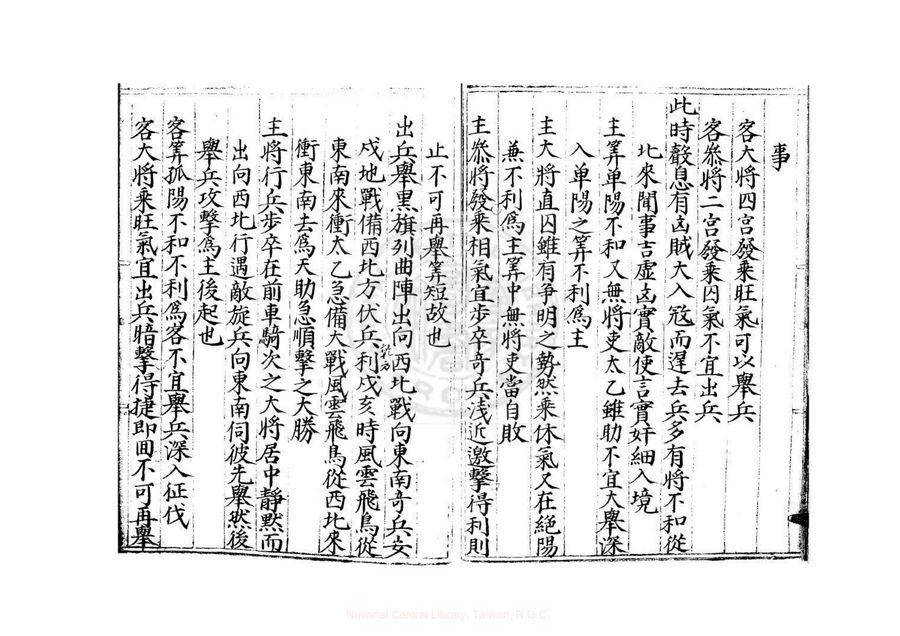 事
客大將四宮發乗旺氣可以舉兵
客叅將二宮發乗囚氣不宜出兵
此時聲息有凶賊大入冦而遅去兵多有將不和從
北來聞事吉虚凶實敵使言實奸細入境
主筭单陽不和又無將吏太乙雖助不宜大舉深
入单陽之筭不利爲主
主大將直囚雖有争明之勢然乗休氣又在絕陽
兼不利爲主筭中無將吏當自敗
主叅將發乗相氣宜步卒竒兵浅近邀擊得利則
止不可再舉筭短故也
出兵舉黑旗列曲陣出向西北戰向東南竒兵安
戍地戰備西北方伏兵利戌亥時風雲飛鳥從
東南來衝太乙急備大戰風雲飛鳥從西北來
衝東南去爲天助急順擊之大勝
主將行兵步卒在前車騎次之大將居中靜黙而
出向西北行遇敵旋兵向東南伺彼先舉然後
舉兵攻擊爲主後起也
客筭孤陽不和不利爲客不宜舉兵深入征伐
客大將乗旺氣宜出兵暗擊得捷即囬不可再舉
National Central Library, Taiwan, R.O.C.